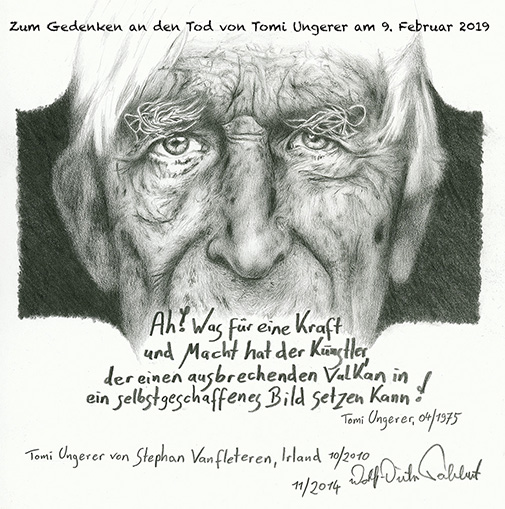 Zum Gedenken an den Tod von Tomi Ungerer am 9. Februar 2019
Ah! Was für eine Kraft
und Macht hat der Künstler,
der einen ausbrechenden Valkan in
ein selbstgeschaffenes Bild setzen Kann!
Tomi Ungerer, 04/1975
Tomi Ungerer von Stephan Vanfleteren, Irland 10/2010
11/2014